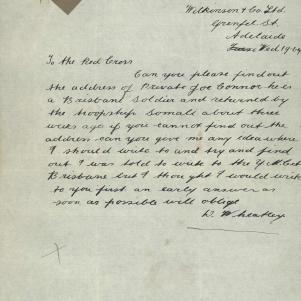 Wilkinson & Co. Ltd.
Grenfel St.
Adelaide
Wed 19
To the Red Cross
Can you please find out
the address of Private Joe Connor he is
a Brisbane Soldier and returned by
the troopship Somali about three
weeks ago if you cannot find out the
address can you give me any idea where
I should write to and try and find
out I was told to write to the Y.M.C.A
Brisbane but I thought I would write
to you first an early answer as
soon as possible will oblige
D. Wheatley